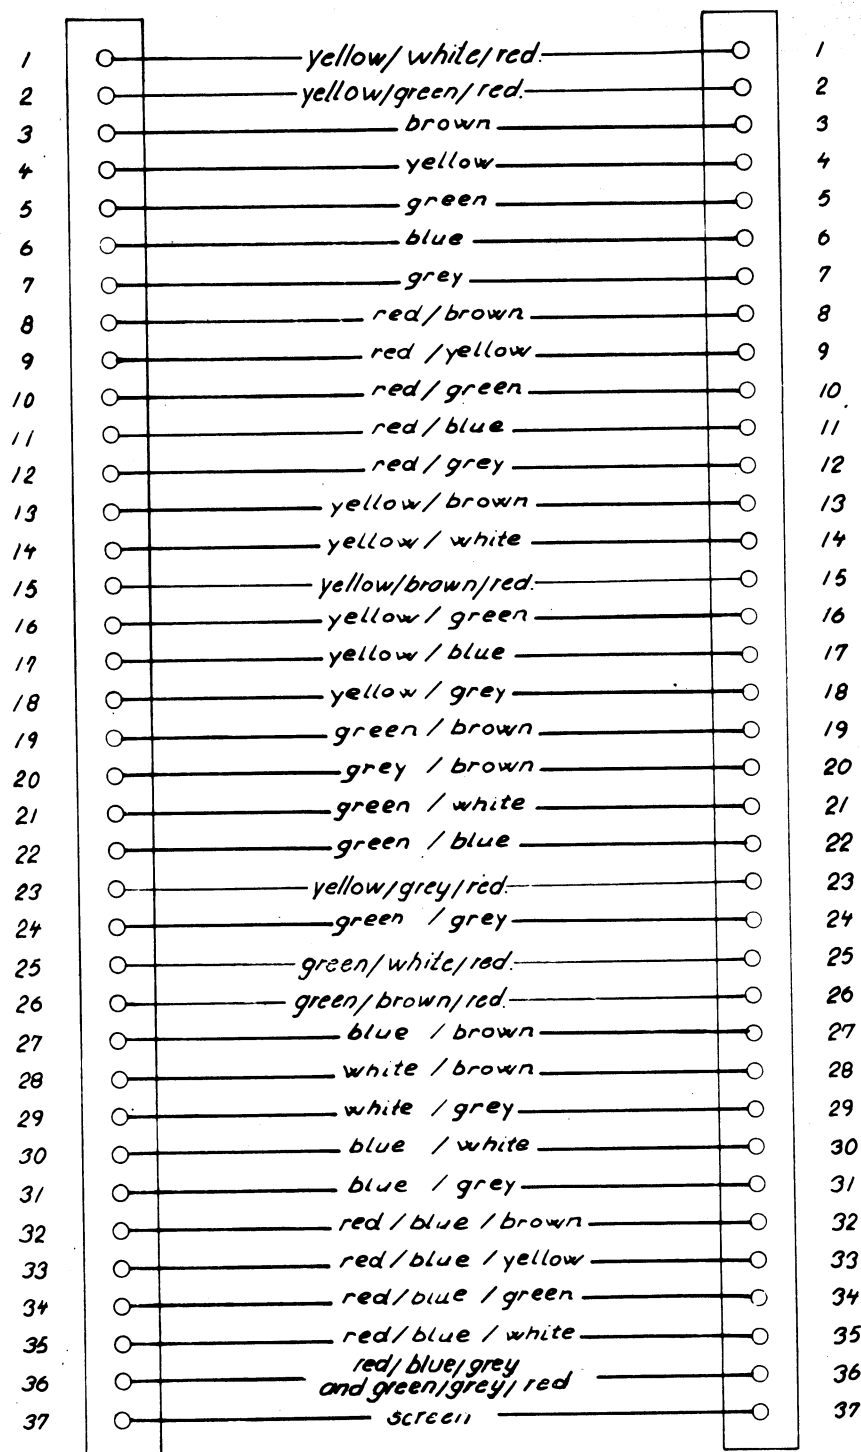 1 yellow/white/red. 1
2 yellow/green/red. 2
3 brown 3
4 yellow 4
5 green 5
6 blue 6
7 grey 7
8 red/brown 8
9 red/yellow 9
10 red/green 10
11 red/blue 11
12 red/grey 12
13 yellow/brown 13
14 yellow/white 14
15 yellow/brown/red. 15
16 yellow/green 16
17 yellow/blue 17
18 yellow/grey 18
19 green/brown 19
20 grey/brown 20
21 green/white 21
22 green/blue 22
23 yellow/grey/red. 23
24 green/grey 24
25 green/white/red. 25
26 green/brown/red. 26
27 blue/brown 27
28 white/brown 28
29 white/grey 29
30 blue/white 30
31 blue/grey 31
32 red/blue/brown 32
33 red/blue/yellow 33
34 red/blue/green 34
35 red/blue/white 35
red/blue/grey
36 and green/grey/red 36
37 screen 37